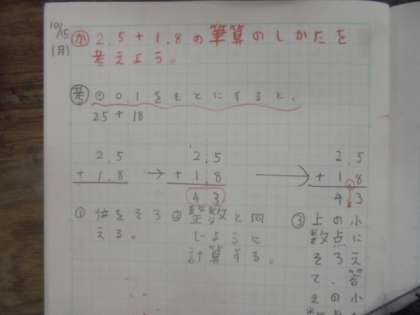 10/15
(月)
か 2.5+1.8の筆算のしかたを
考えよう。
考 ・0.1をもとにすると、
25+18
2.5
+1.8
→
2.5
+1.8
43
→
2.5
+1.8
43
①位をそろ
える。
②整数と同
じように
計算する。
③上の小
数点に
そろえ
て、答
えの小